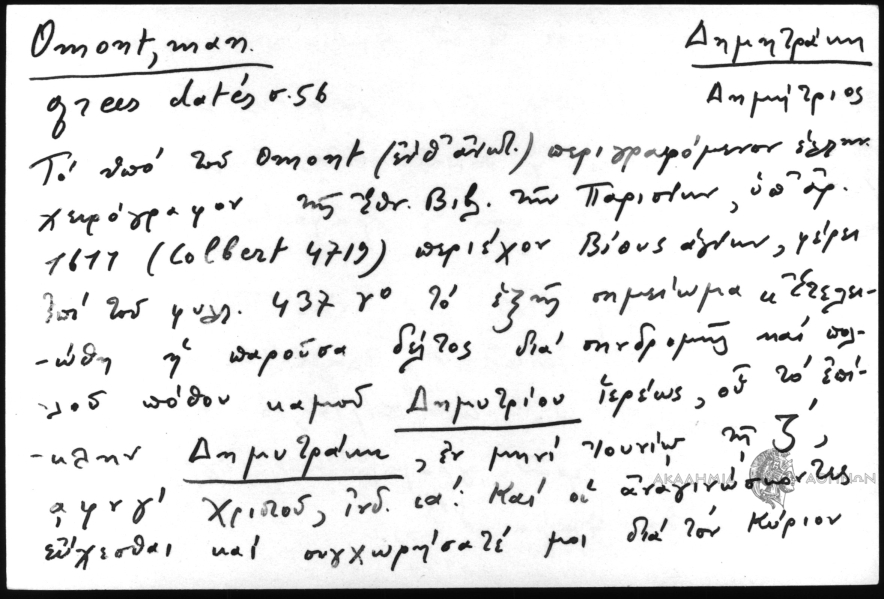 Omont, man. Δημητράκη
grecs datés σ. 56 Δημήτριος
Τό ὑπό τοῦ Omont (ἔνθ᾽ ἀνωτ.) περιγραφόμενον ἑλλην.
χειρόγραφον τῆς Ἐθν. Βιβ. τῶν Παρισίων, ὑπ᾽ ἀρ.
1611 (Colbert 4719) περιέχον Βίους ἁγίων, φέρει
ἐπί τοῦ φυλλ. 437 vo τό ἑξῆς σημείωμα «Ἐτελει-
-ώθη ἡ παροῦσα δέλτος διά συνδρομῆς καί πολ-
-λοῦ πόθου καμοῦ Δημυτρίου ἱερέως, οὗ τό ἐπί-
-κλην Δημυτράκη, ἐν μηνί Ἰουνίῳ τῇ ζ΄,
͵αφνγ΄ Χριστοῦ, ἰνδ. ια΄: Καί οἱ ἀναγινώσκοντες
εὔχεσθαι καί συγχωρήσατέ μοι διά τόν Κύριον
ΑΚΑΔΗΜΙΑ ΑΘΗΝΩΝ